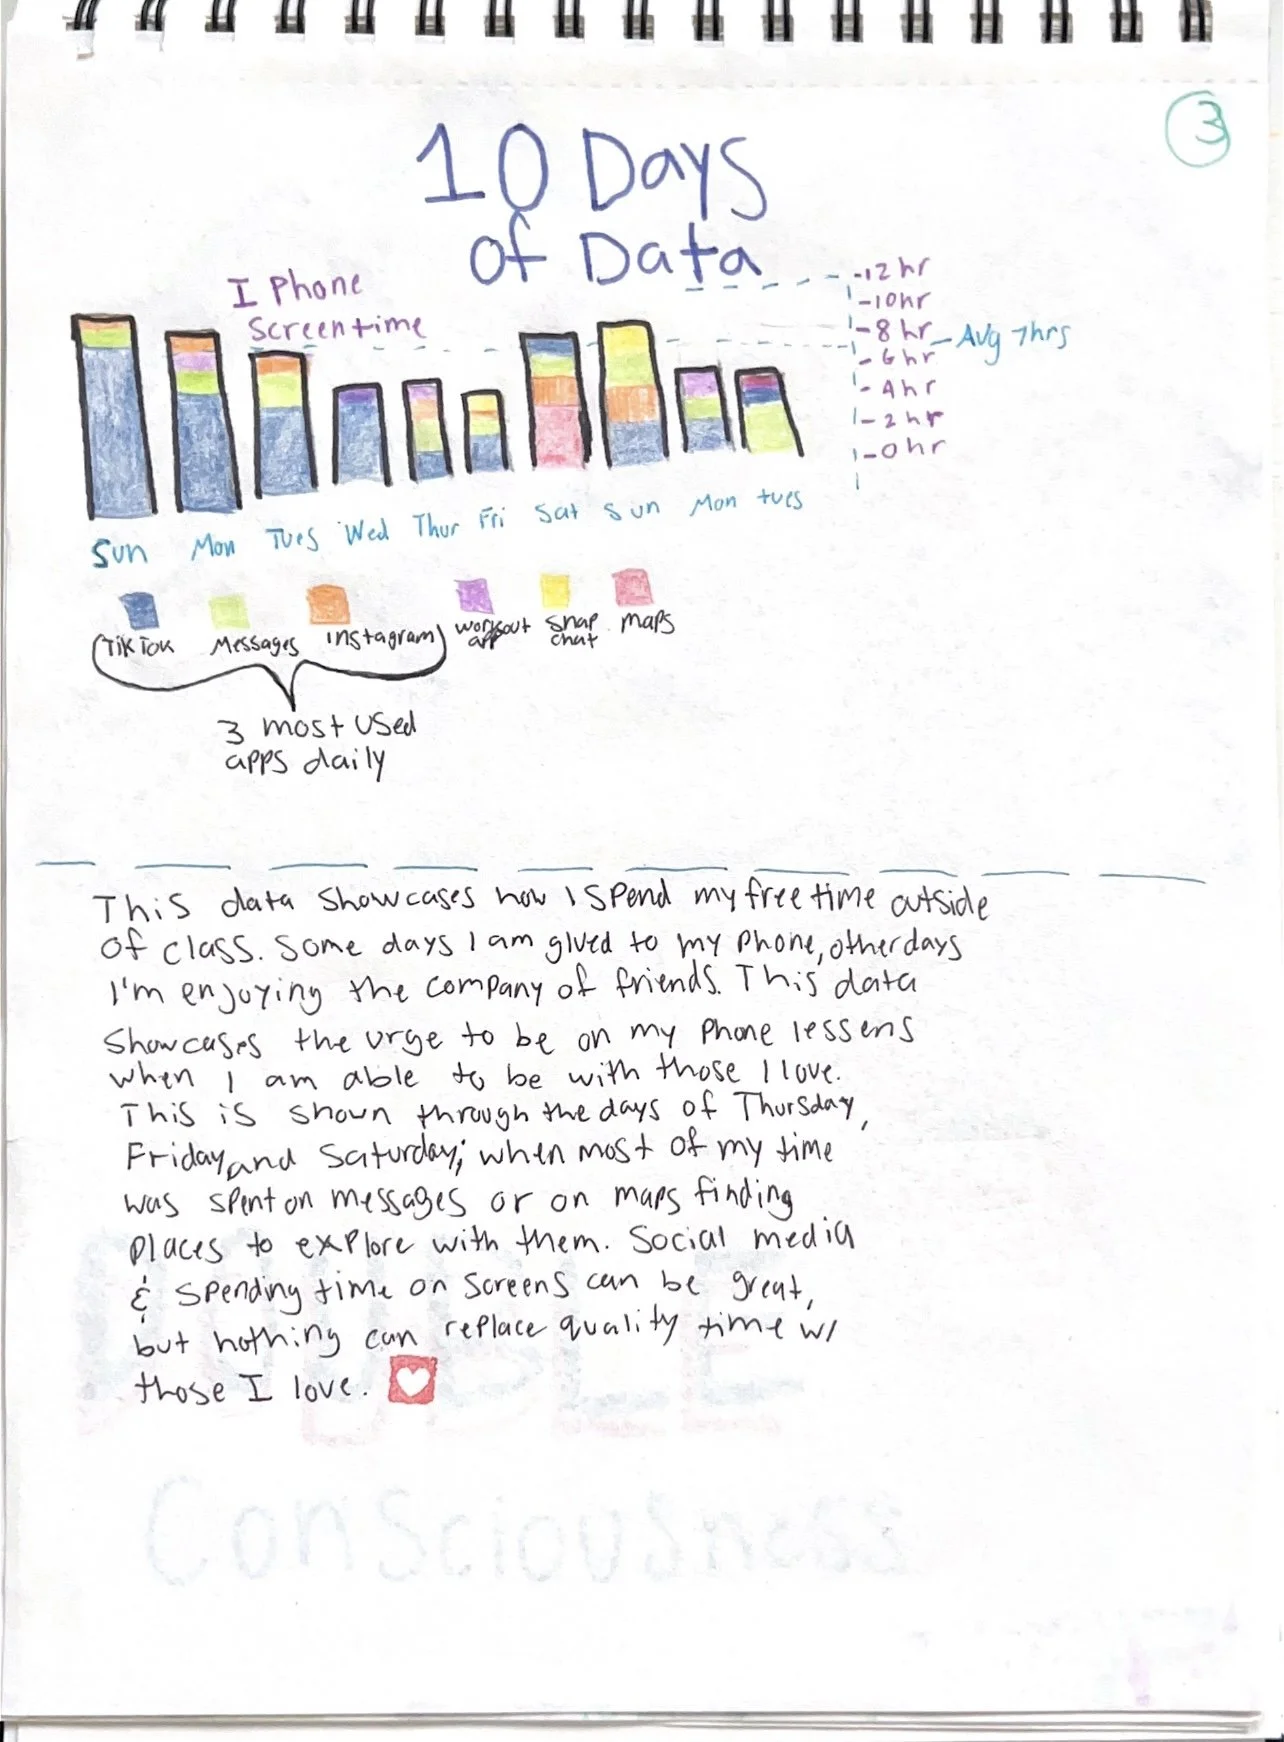 3
10 Days
of Data
I Phone
Screentime
-12 hr
-10hr
-8 hr
- Avg 7hrs
- 6 hr
- 4 hr
- 2 hr
-0 hr
Sun Mon Tues Wed Thur Fri Sat Sun Mon tues
TikTok Messages instagram workout app snap chat maps
3 most used
apps daily
This data showcases how I spend my free time outside
of class. Some days I am glued to my phone, other days
I'm enjoying the company of friends. This data
showcases the urge to be on my phone lessens
when I am able to be with those I love.
This is shown through the days of Thursday,
Friday, and Saturday; when most of my time
was spent on messages or on maps finding
places to explore with them. Social media
& spending time on screens can be great,
but nothing can replace quality time w/
those I love.
DOUBLE
Consciousness